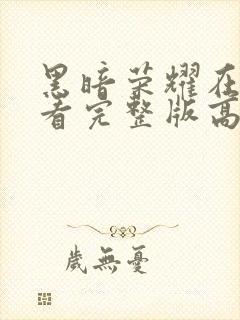 黑暗荣耀在
看完整版高
歲無憂